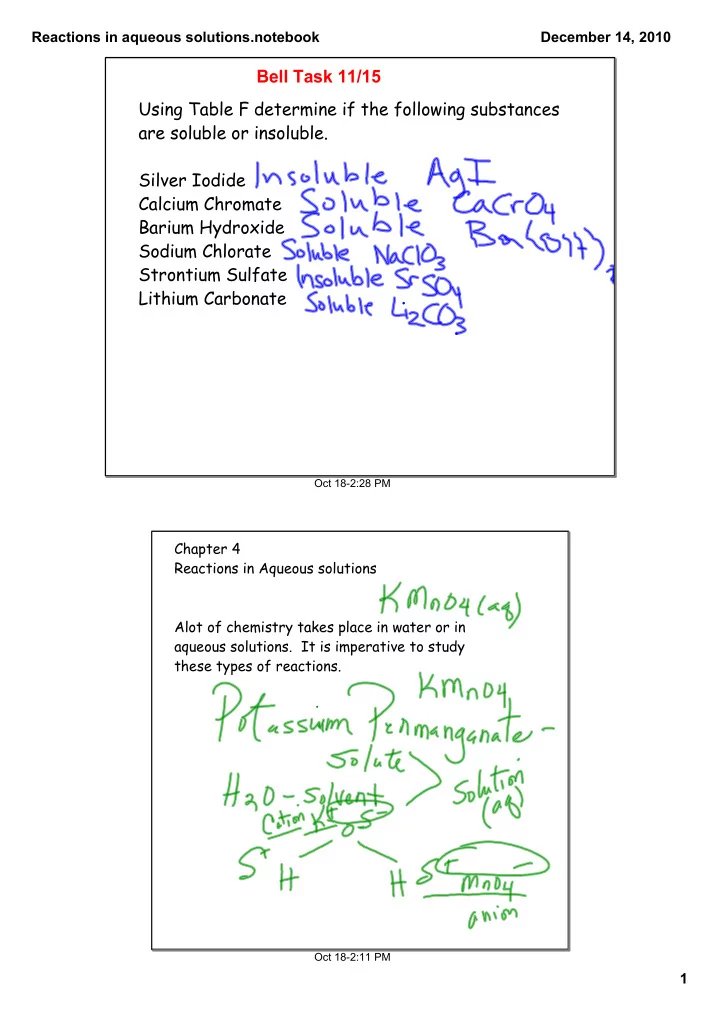 Reactions in aqueous solutions.notebook December 14, 2010
Bell Task 11/15
Using Table F determine if the following substances
are soluble or insoluble.
Silver Iodide Insoluble AgI
Calcium Chromate Soluble CaCrO4
Barium Hydroxide Soluble Ba(OH)2
Sodium Chlorate Soluble NaClO3
Strontium Sulfate Insoluble SrSO4
Lithium Carbonate Soluble Li2CO3
Oct 18-2:28 PM
Chapter 4
Reactions in Aqueous solutions
KMnO4(aq)
Alot of chemistry takes place in water or in
aqueous solutions. It is imperative to study
these types of reactions.
KMnO4
Potassium Permanganate -
Solute
H2O - Solvent
Solution
(aq)
Cation K+
O δ-
δ+ H H δ+ -
MnO4
anion
Oct 18-2:11 PM
1